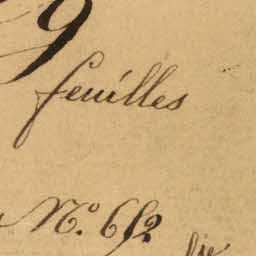 9
feuilles
N.º 652